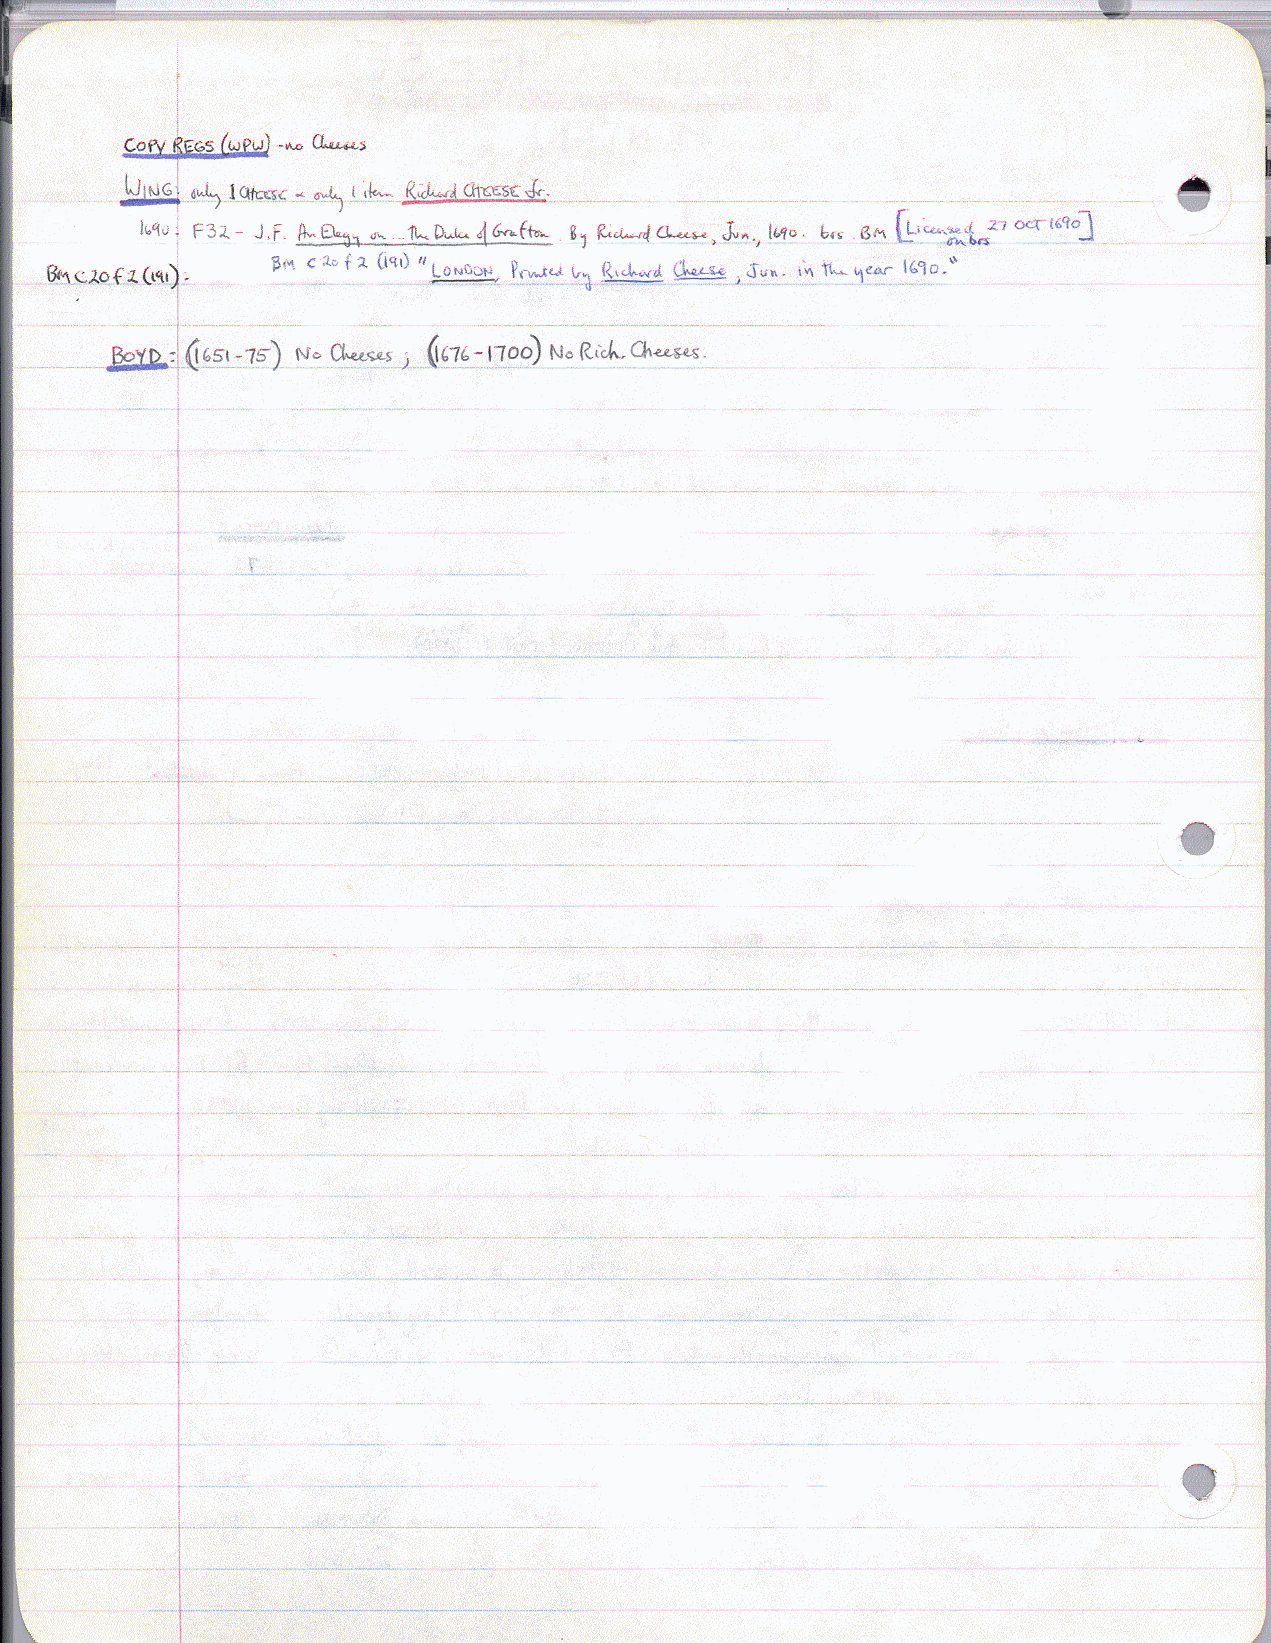 COPY REGS (WPW) - no Cheeses
WING: only 1 CHEESE & only 1 item Richard CHEESE Jr.
1690: F32 - J.F. An Elegy on ... the Duke of Grafton. By Richard Cheese, Jun., 1690. brs. BM [Licensed 27 OCT 1690]
on brs
BM C 20 f 2 (191) "LONDON, Printed by Richard Cheese, Jun. in the year 1690."
BM C 20 f 2 (191):
BOYD: (1651-75) No Cheeses; (1676-1700) No Rich. Cheeses.